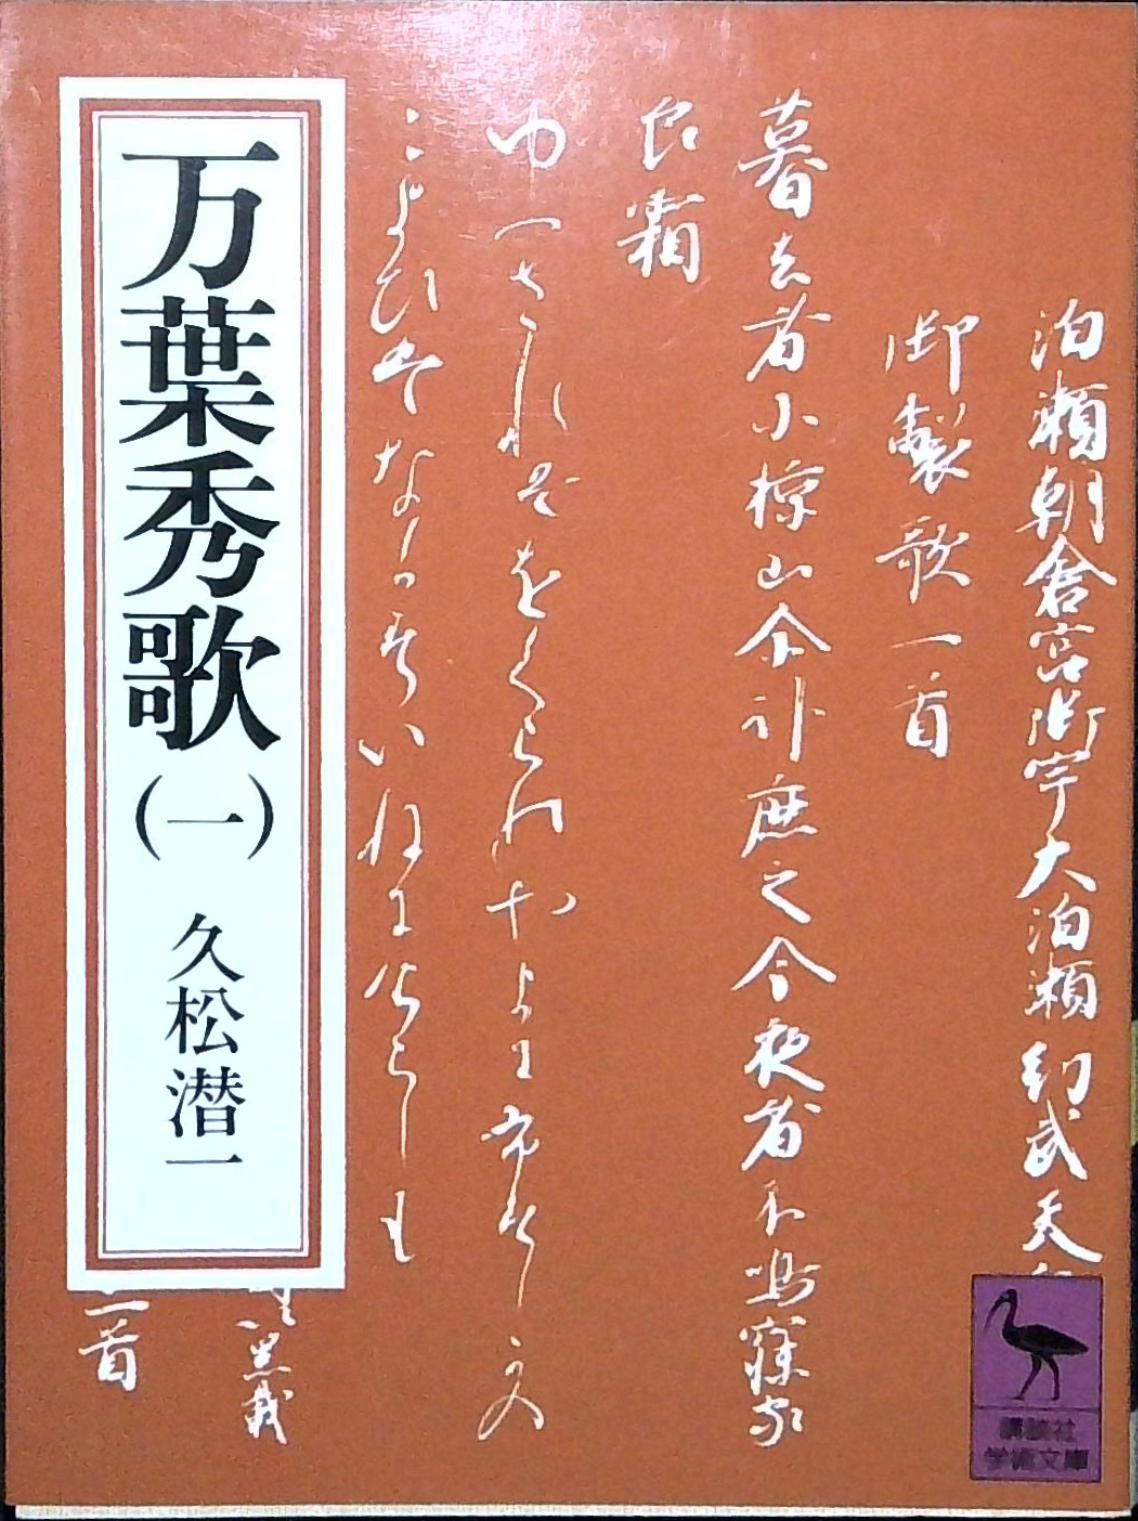 万葉秀歌(一)
久松潜一
泊瀬朝倉宮御宇大泊瀬幼武天
御製歌一首
暮去者小椋山尓臥鹿之今夜者不鳴寐家
良霜
ゆふされはをくらのやまにふすしかの
こよひはなかすいねにけらしも
首
講談社
学術文庫